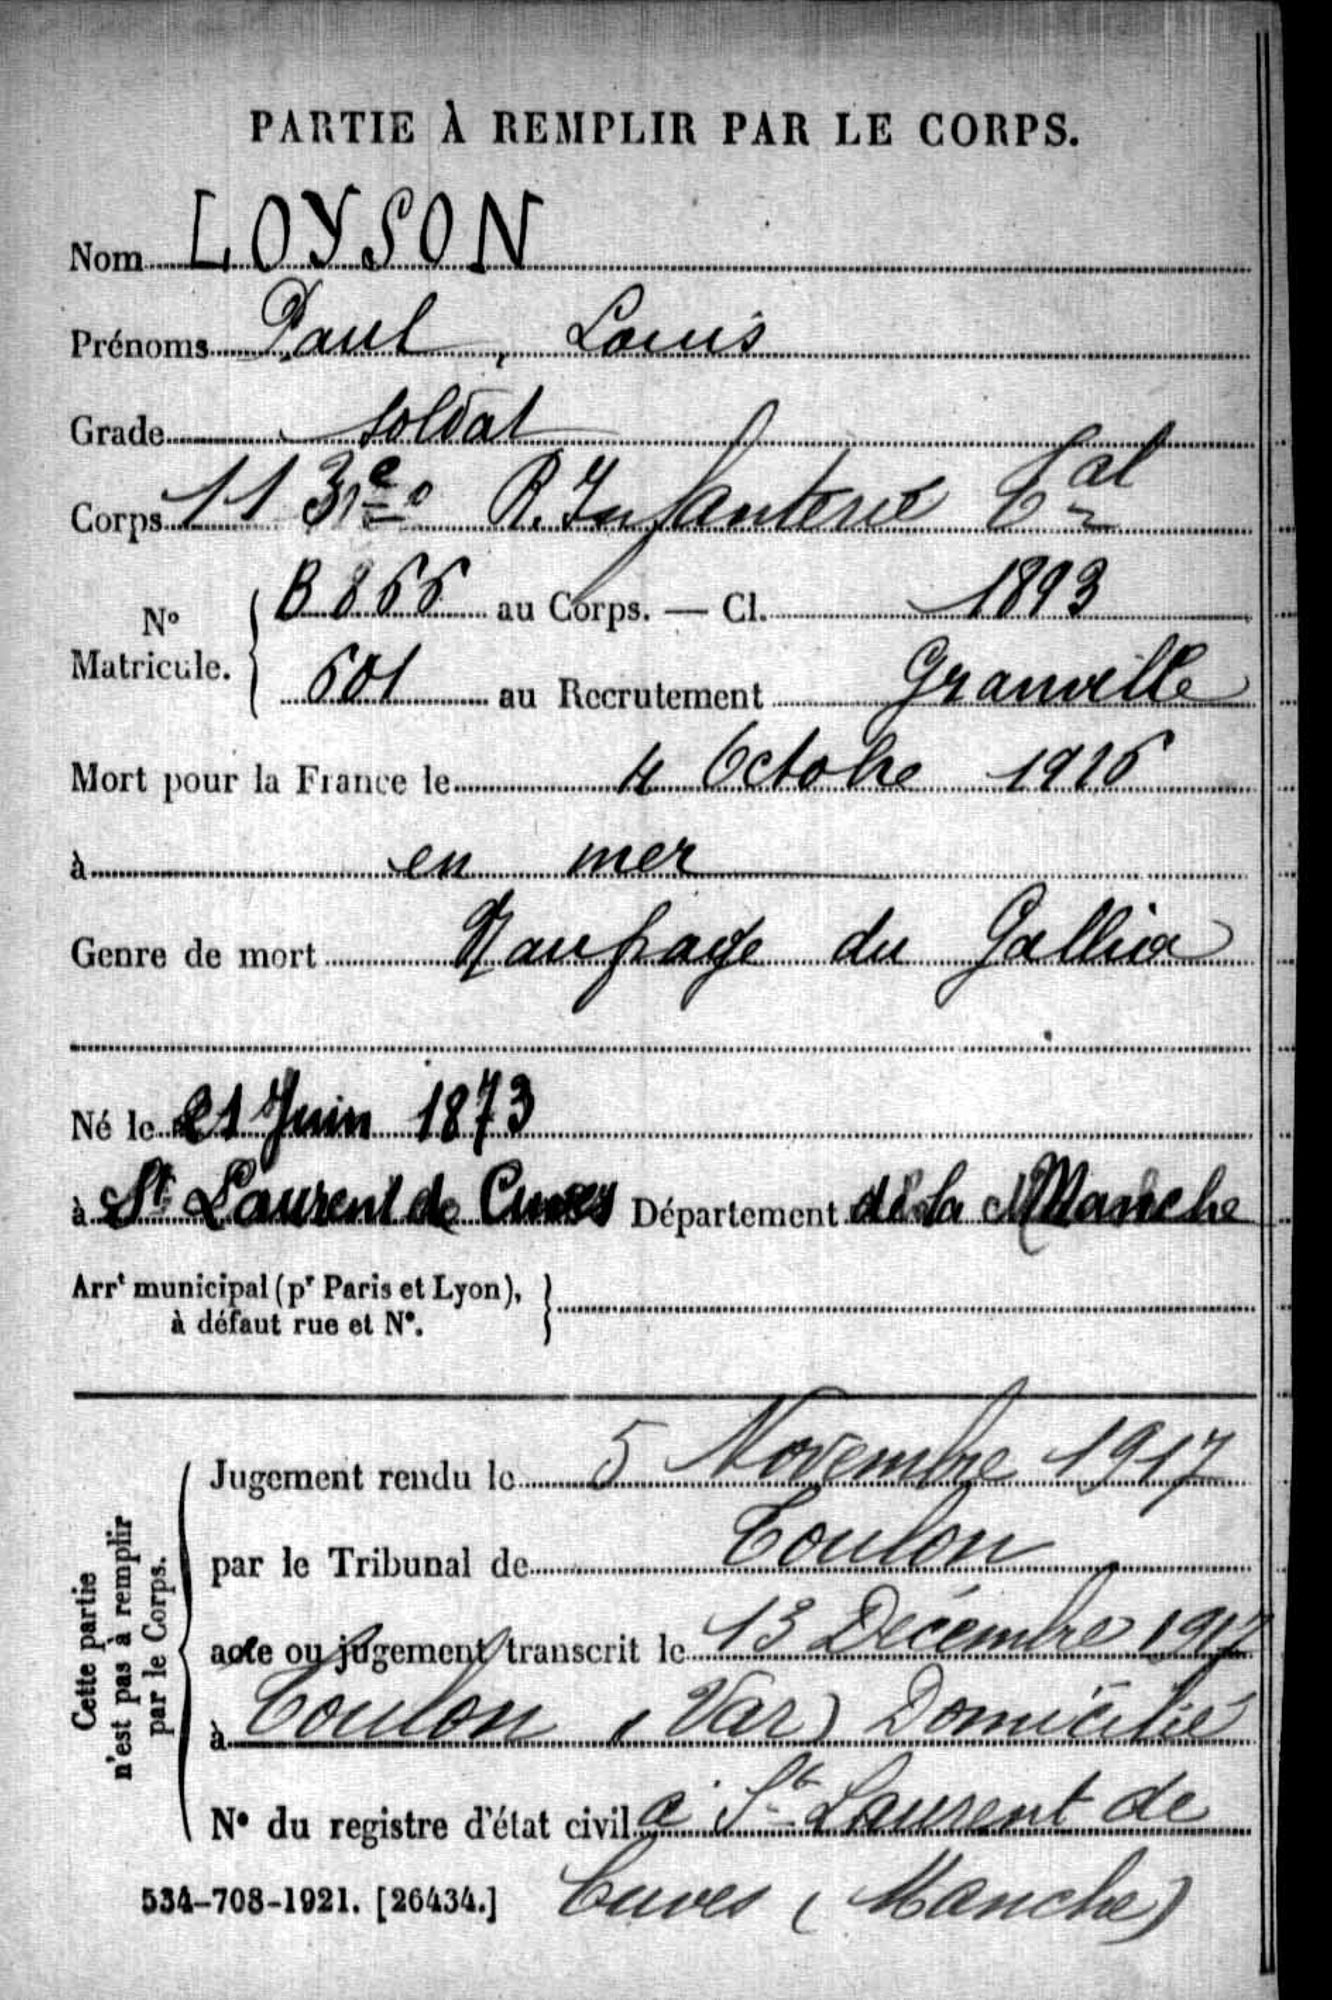 PARTIE À REMPLIR PAR LE CORPS.
Nom LOYSON
Prénoms Paul, Louis
Grade soldat
Corps 113e R. Infanterie Cal
No Matricule. B 866 au Corps. — Cl. 1893
601 au Recrutement Granville
Mort pour la France le 4 Octobre 1916
à en mer
Genre de mort Naufrage du Gallia
Né le 21 Juin 1873
à St Laurent de Cuves Département de la Manche
Arrt municipal (pr Paris et Lyon),
à défaut rue et N°.
Cette partie
n'est pas à remplir
par le Corps.
Jugement rendu le 5 Novembre 1917
par le Tribunal de Toulon
acte ou jugement transcrit le 13 Décembre 1917
à Toulon (Var) Domicilié
N° du registre d'état civil à St Laurent de
534-708-1921. [26434.] Cuves (Manche)